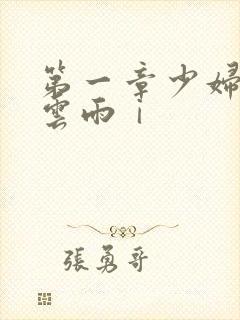 第一章少婦
雲雨｜
張勇哥